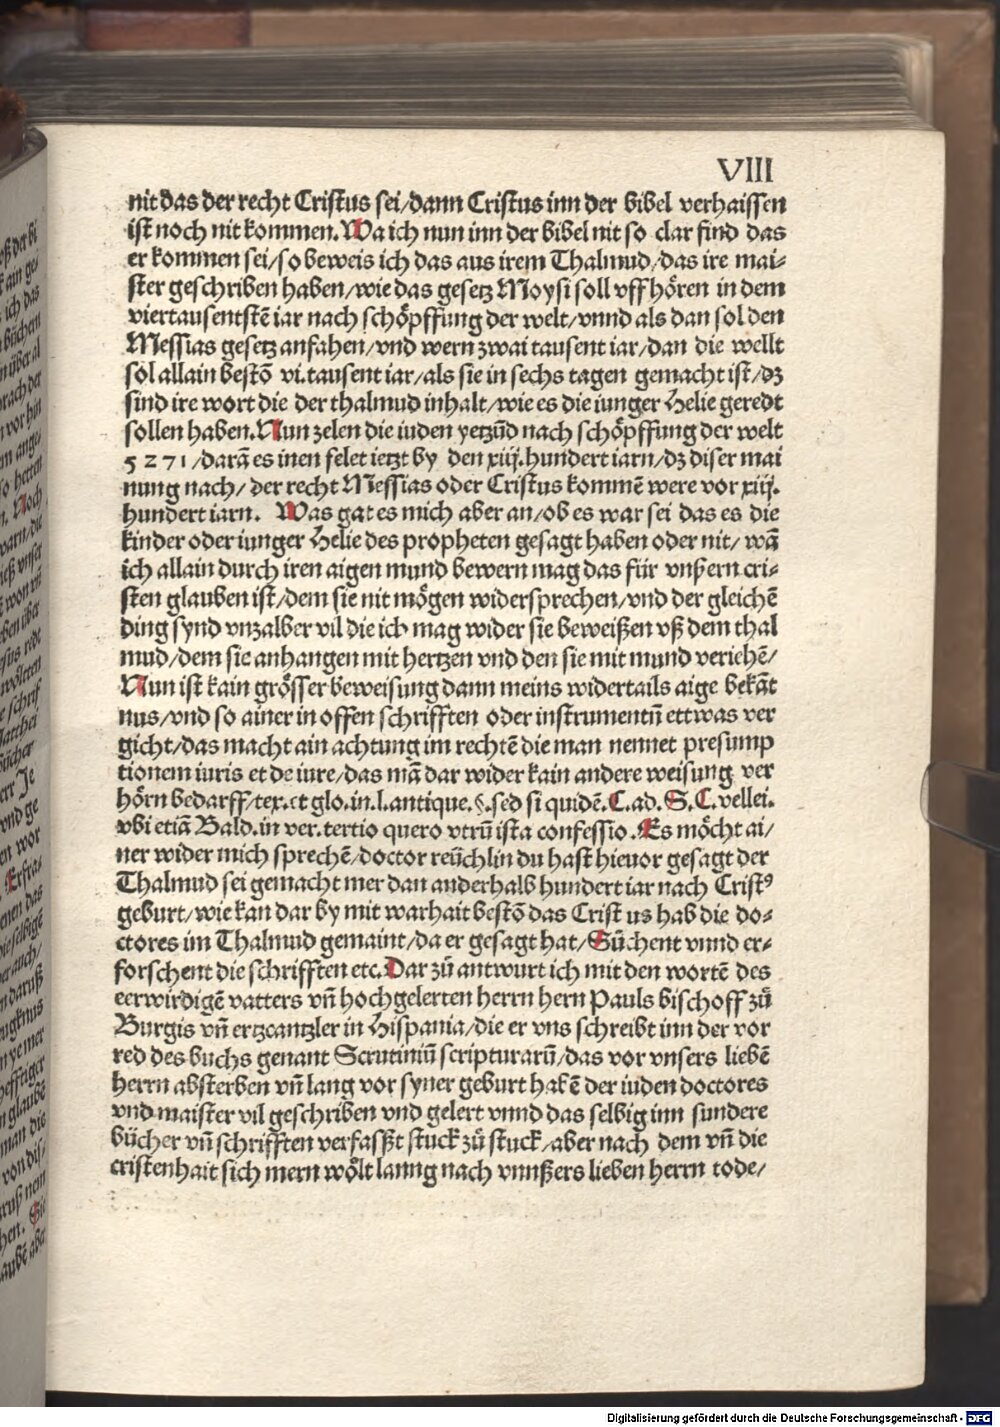 VIII
nit das der recht Cristus sei/dann Cristus inn der bibel verhaissen
ist noch nit kommen. Wa ich nun inn der bibel nit so clar find das
er kommen sei/so beweis ich das aus irem Thalmud/das ire mai⸗
ster geschriben haben/wie das gesetz Moysi soll vff hören in dem
viertausentstē iar nach schöpffung der welt/vnnd als dan sol den
Messias gesetz anfahen/vnd wern zwai tausent iar/dan die wellt
sol allain bestō vi.tausent iar/als sie in sechs tagen gemacht ist/dz
sind ire wort die der thalmud inhalt/wie es die iunger Helie geredt
sollen haben. Nun zelen die iuden yetzūd nach schöpffung der welt
5271/darā es inen felet ietzt by den xiij.hundert iarn/dz diser mai
nung nach/ der recht Messias oder Cristus kommē were vor xiij.
hundert iarn. Was gat es mich aber an/ob es war sei das es die
kinder oder iunger Helie des propheten gesagt haben oder nit/ wā
ich allain durch iren aigen mund bewern mag das für vnßern cri⸗
sten glauben ist/dem sie nit mögen widersprechen/vnd der gleichē
ding synd vnzalber vil die ich mag wider sie beweißen vß dem thal
mud/dem sie anhangen mit hertzen vnd den sie mit mund veriehē/
Nun ist kain grösser beweisung dann meins widertails aige bekāt
nus/vnd so ainer in offen schrifften oder instrumentū ettwas ver
gicht/das macht ain achtung im rechtē die man nennet presump
tionem iuris et de iure/das mā dar wider kain andere weisung ver
hörn bedarff/tex.et glo.in.l.antique.§.sed si quidē.C.ad.S.C.vellei.
vbi etiā Bald.in ver.tertio quero vtrū ista confessio. Es möcht ai/
ner wider mich sprechē/doctor reüchlin du hast hieuor gesagt der
Thalmud sei gemacht mer dan anderhalb hundert iar nach Cristꝰ
geburt/wie kan dar by mit warhait bestō das Crist us hab die do⸗
ctores im Thalmud gemaint/da er gesagt hat/Sůchent vnnd er⸗
forschent die schrifften etc. Dar zů antwurt ich mit den wortē des
eerwirdigē vatters vñ hochgelerten herrn hern Pauls bischoff zů
Burgis vñ ertzcantzler in Hispania/die er vns schreibt inn der vor
red des buchs genant Scrutiniū scripturarū/das vor vnsers liebē
herrn absterben vñ lang vor syner geburt habē der iuden doctores
vnd maister vil geschriben vnd gelert vnnd das selbig inn sundere
bücher vñ schrifften verfasßt stuck zů stuck/aber nach dem vñ die
cristenhait sich mern wölt lanng nach vnnßers lieben herrn tode/
Digitalisierung gefördert durch die Deutsche Forschungsgemeinschaft - DFG